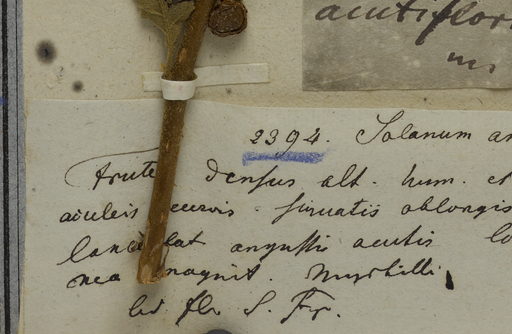 acutiflor
m
2394. Solanum a
Frute densus alt. hum. et
aculeis curvis. sinuatis oblongis
lance lat angustis acutis lo
nea magnit. Myrtilli